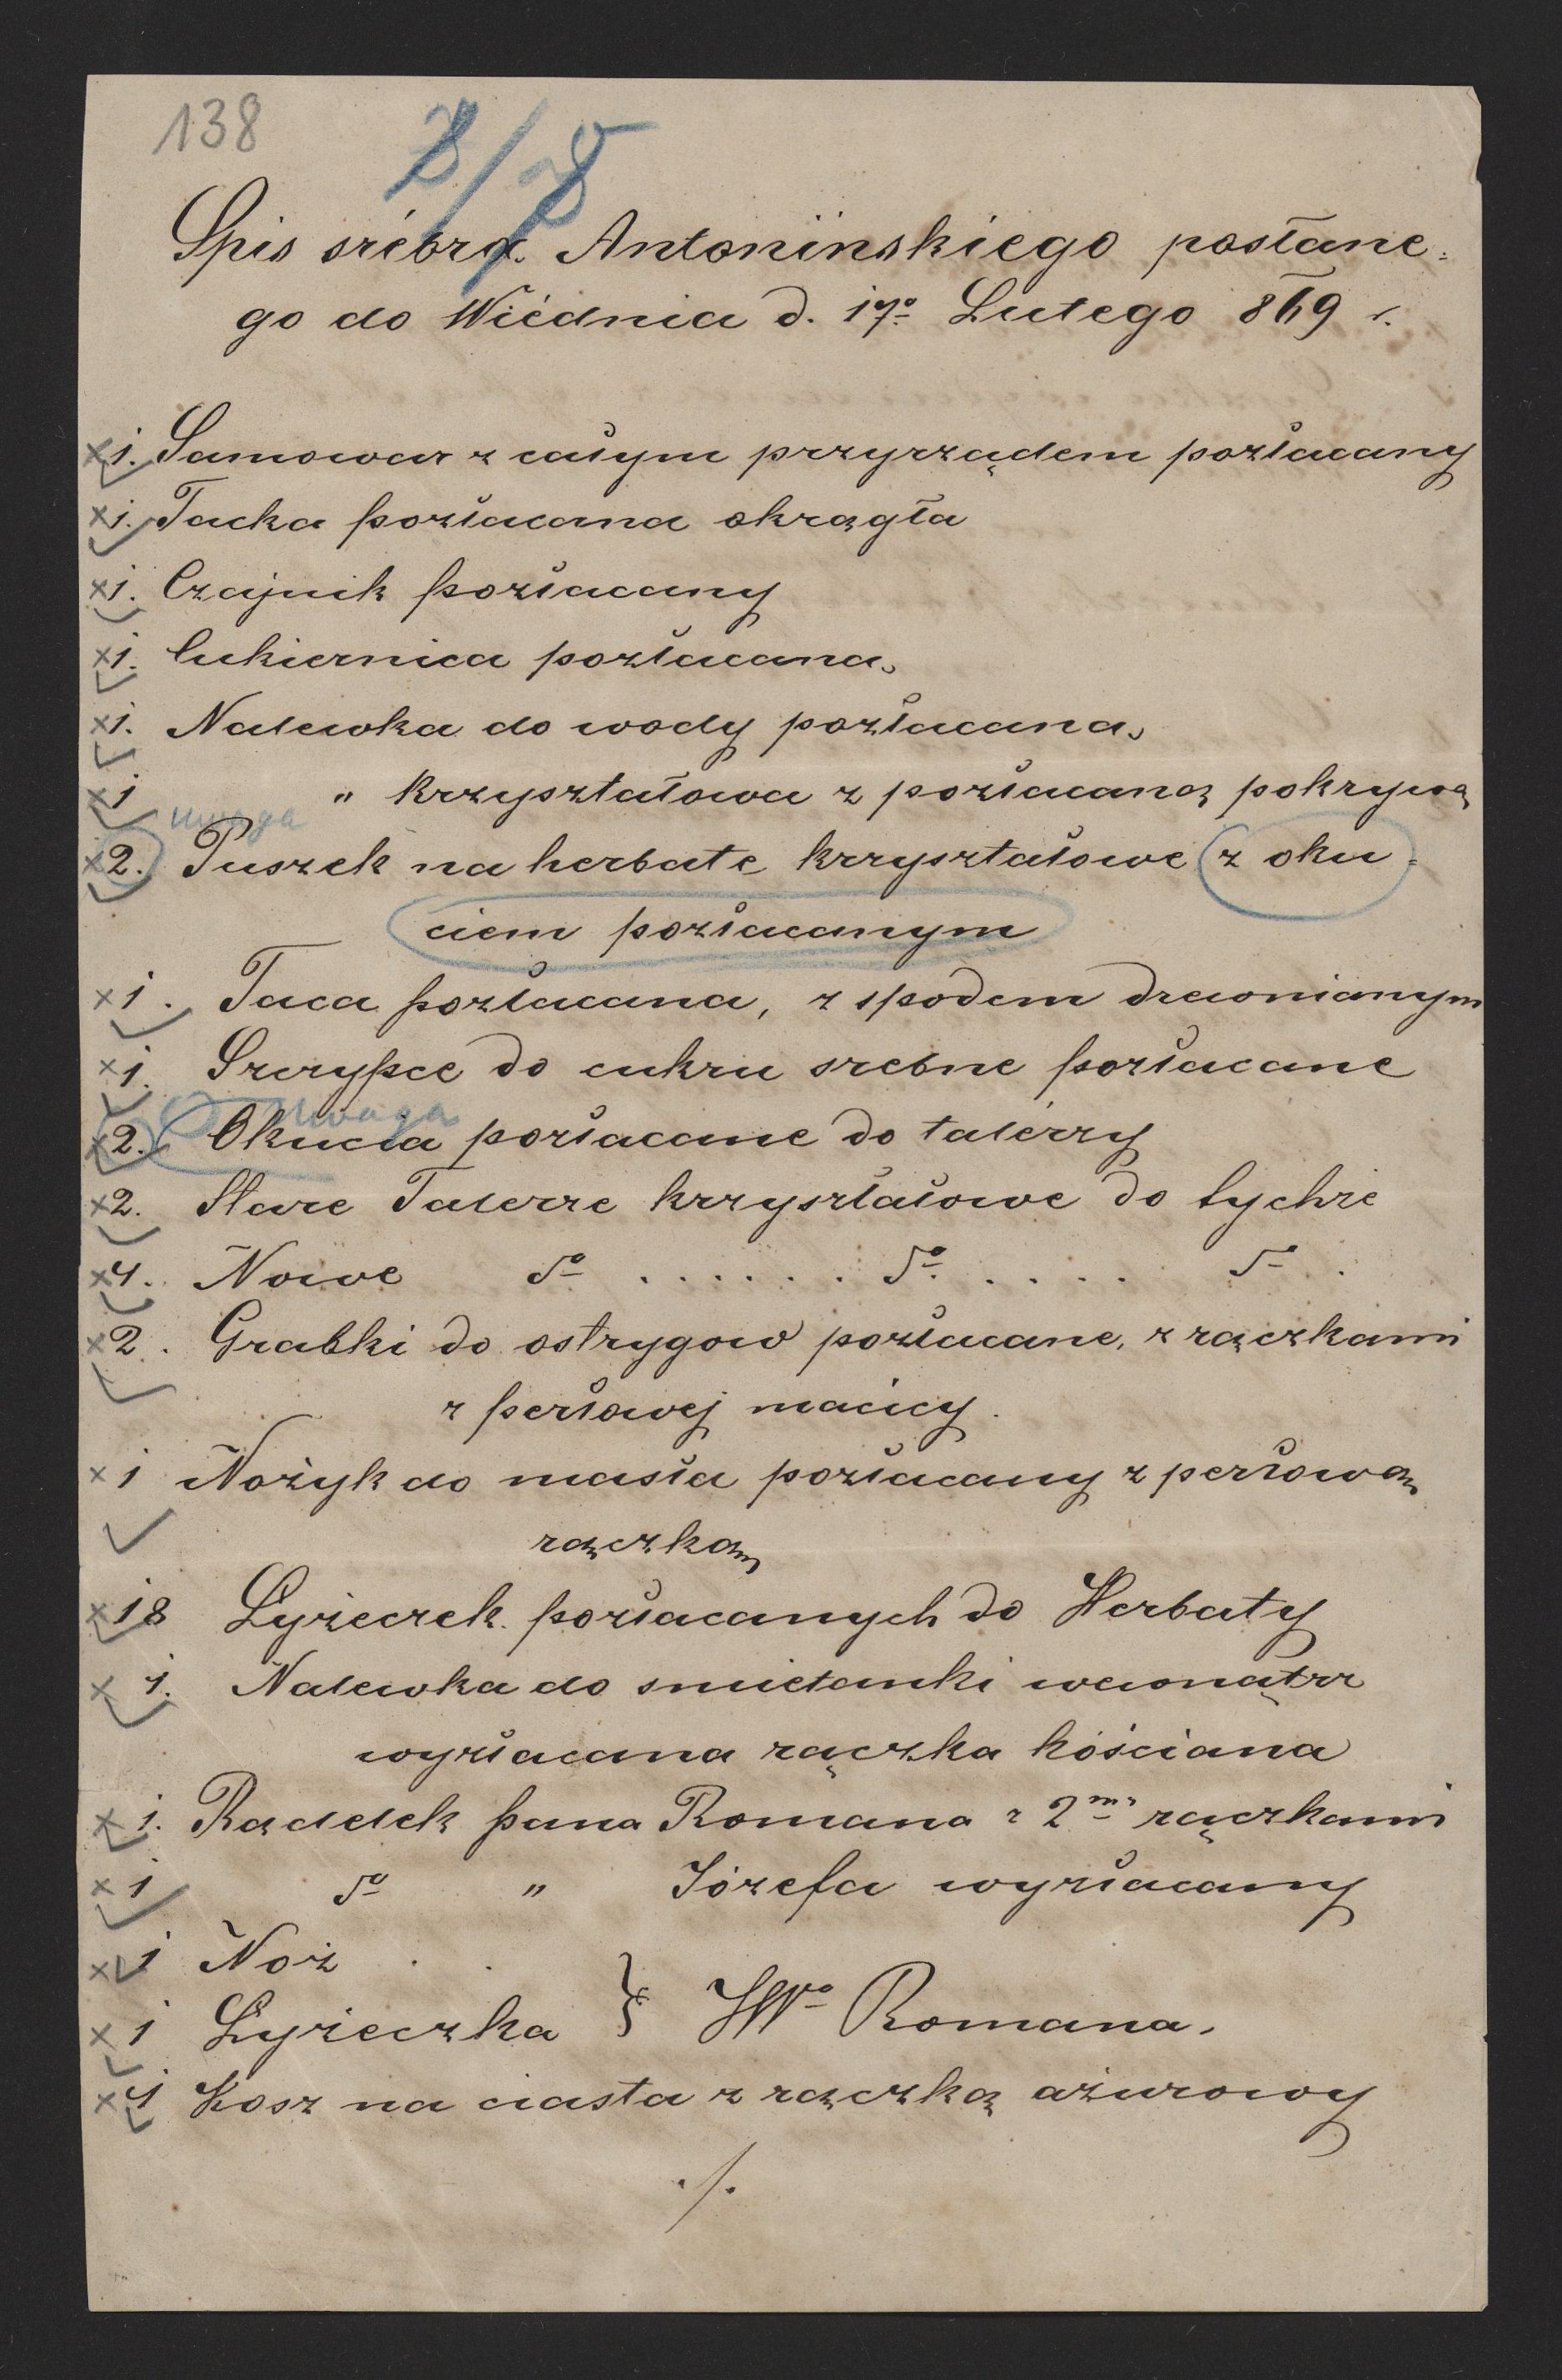 138
Spis srébra Antonińskiego posłane-
go do Wiédnia d. 17º Lutego 869 r.
x 1. Samowar z całym przyrządem pozłacany
x 1. Tacka pozłacana okrągła
x 1. Czajnik pozłacany
x 1. Cukiernica pozłacana
x 1. Nalewka do wody pozłacana
x 1 " krzyształowa z pozłacaną pokrywą
uwaga
x 2. Puszek na herbatę krzyształowe z oku-
ciem pozłacanym
x 1. Taca pozłacana, z spodem drewnianym
x 1. Szczypce do cukru srebne pozłacane
uwaga
x 2. Okucia pozłacane do talérzy
x 2. Stare Talerze krzyształowe do tychże
x 4. Nowe dº ...... dº .... dº .
x 2. Grabki do ostrygow pozłacane, z rączkami
z perłowej macicy.
x 1 Nożyk do masła pozłacany z perłową
rączką
x 18 Łyżeczek pozłacanych do Herbaty
x 1. Nalewka do smietanki wewnątrz
wyzłacana rączka kościana
x 1. Radelek pana Romana z 2ma rączkami
x 1 dº " Józefa wyzłacany
x 1 Noż . .
x 1 Łyżeczka } JWº Romana.
x 1 Kosz na ciasta z rączką ażurowy
./.